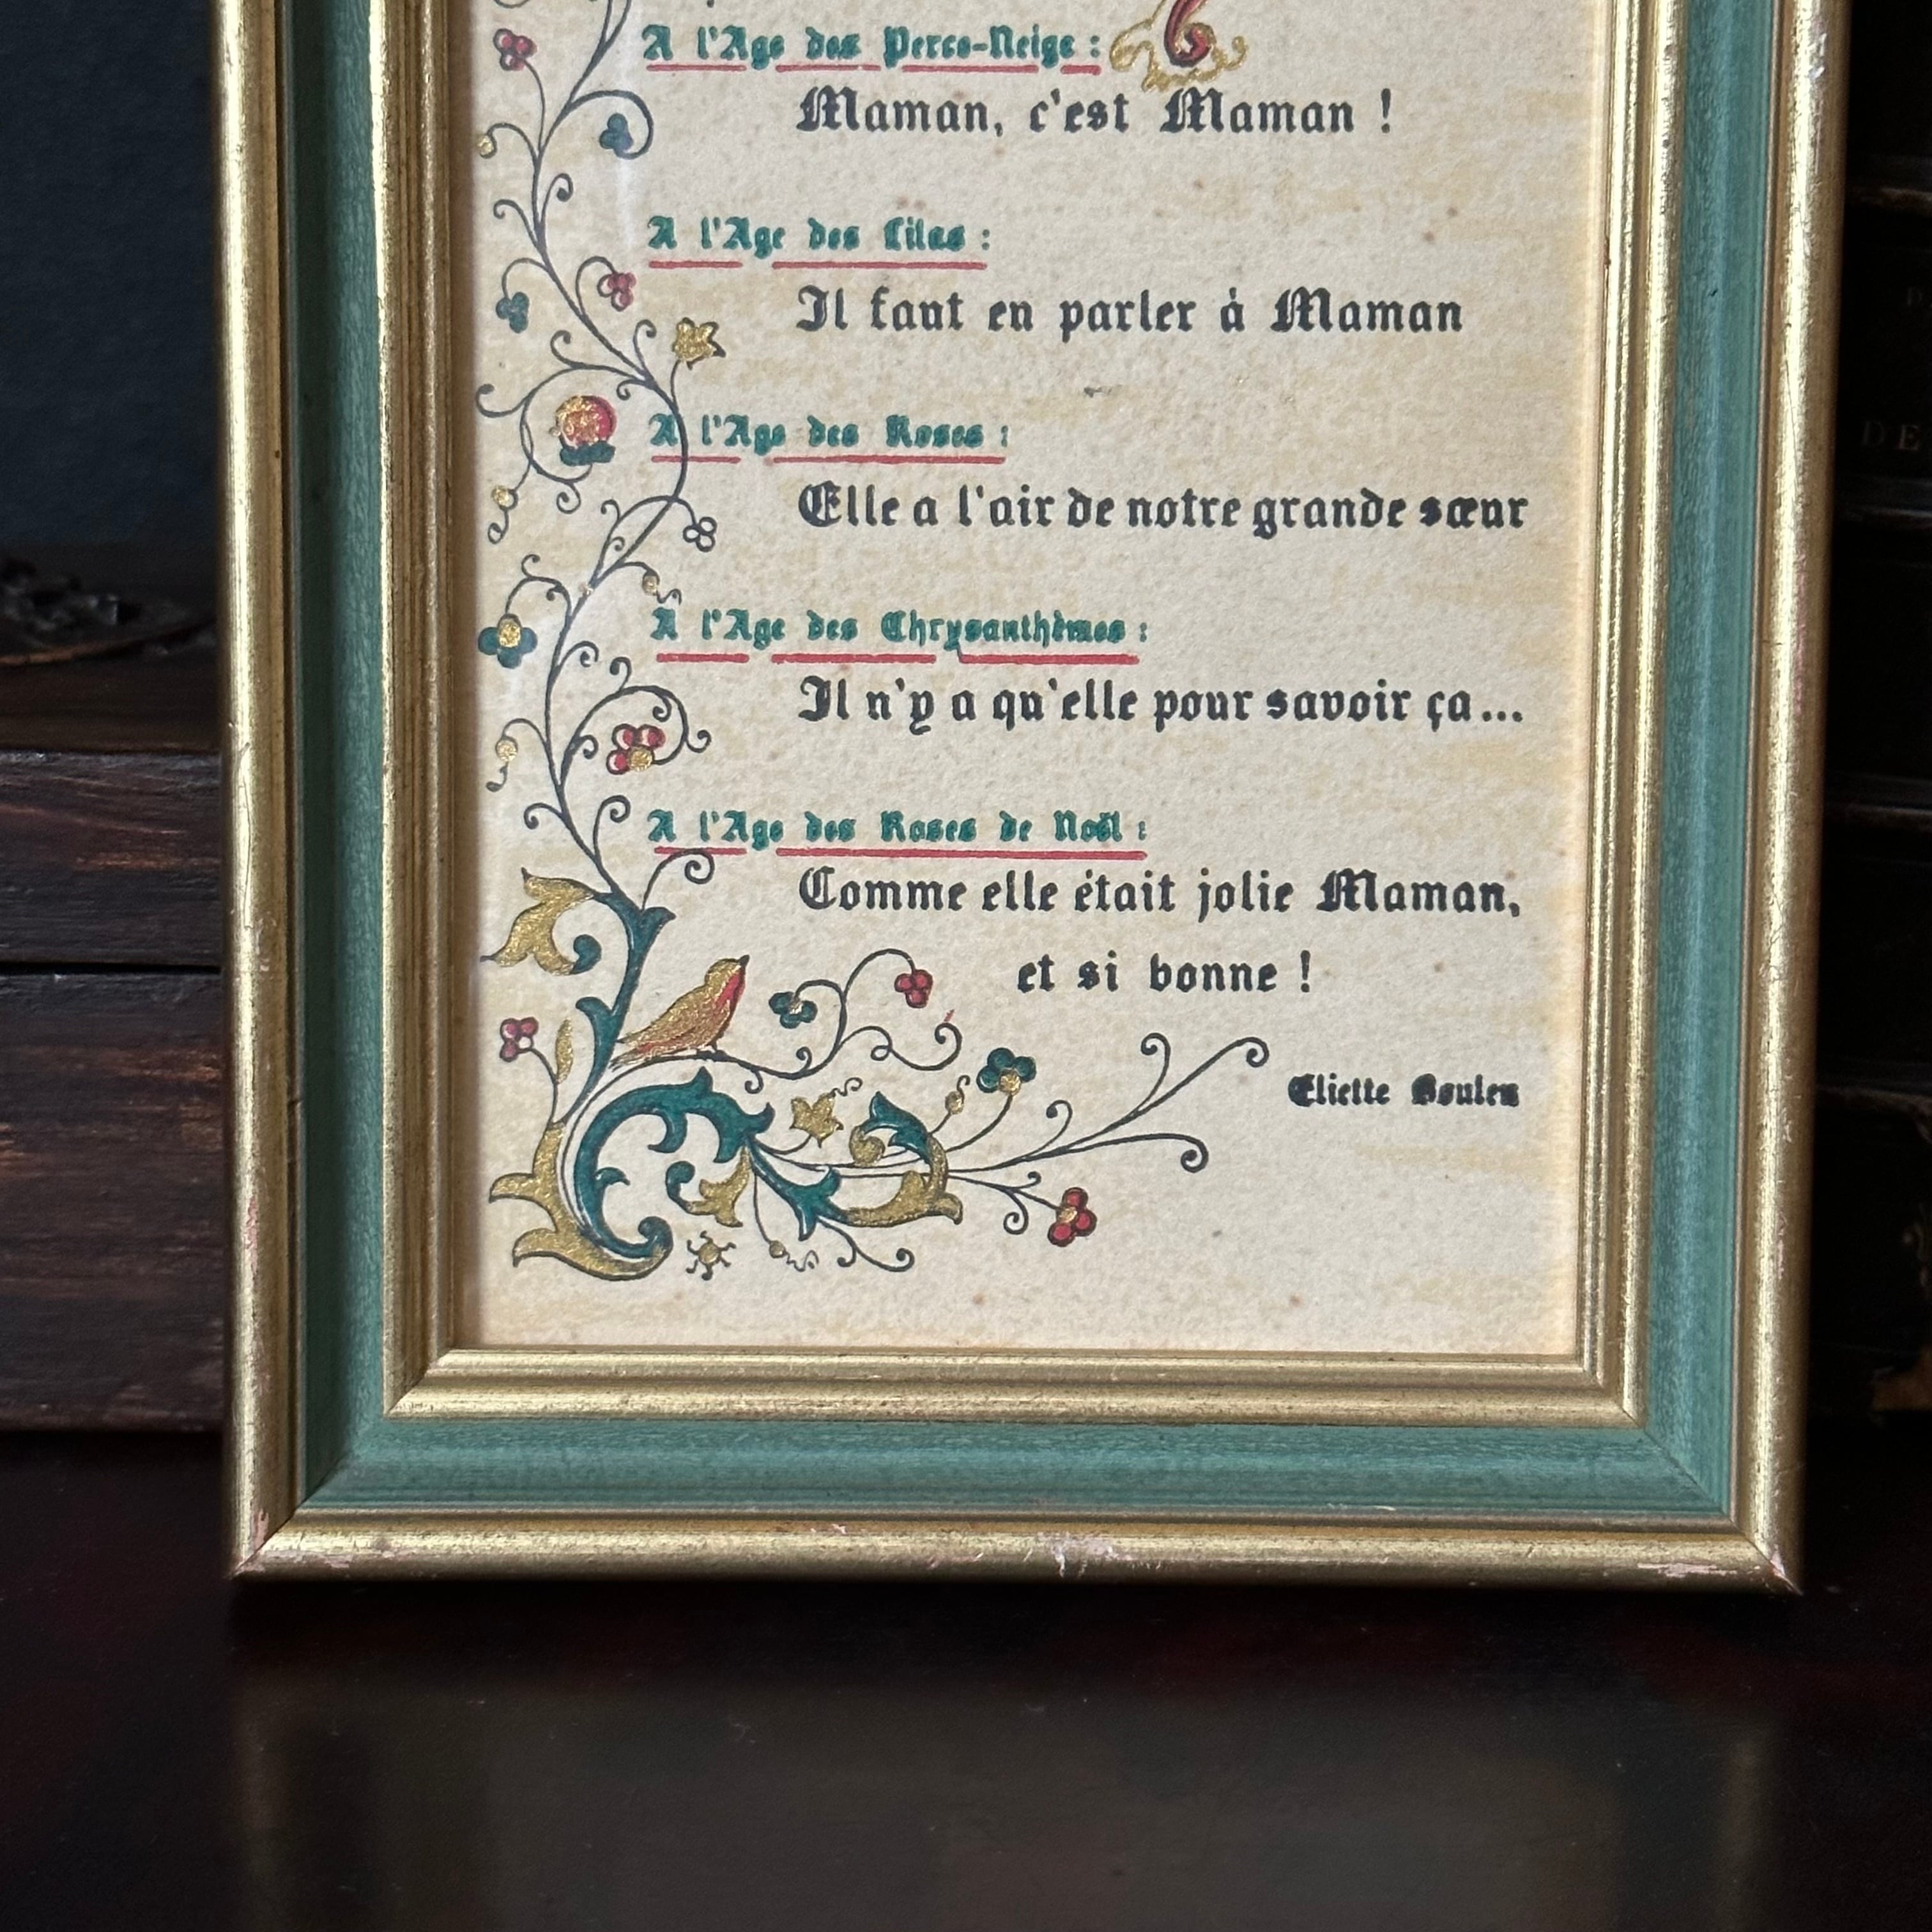 A l'Age des Perce-Neige :
Maman, c'est Maman !
A l'Age des Lilas :
Il faut en parler à Maman
A l'Age des Roses :
Elle a l'air de notre grande sœur
A l'Age des Chrysanthèmes :
Il n'y a qu'elle pour savoir ça...
A l'Age des Roses de Noël :
Comme elle était jolie Maman,
et si bonne !
Eliette
DE